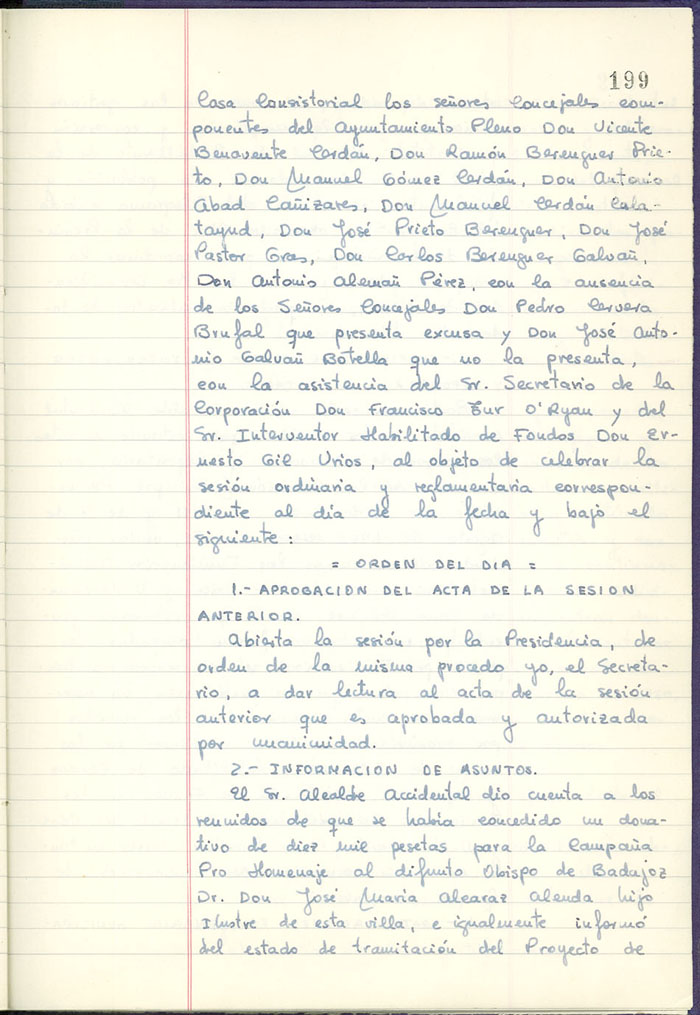 199
Casa Consistorial los señores Concejales com-
ponentes del Ayuntamiento Pleno Don Vicente
Benavente Cerdán, Don Ramón Berenguer Prie-
to, Don Manuel Gómez Cerdán, Don Antonio
Abad Cañizares, Don Manuel Cerdán Cala-
tayud, Don José Prieto Berenguer, Don José
Pastor Gras, Don Carlos Berenguer Galvañ,
Don Antonio Alemañ Pérez, con la ausencia
de los Señores Concejales Don Pedro Cervera
Brufal que presenta excusa y Don José Anto-
nio Galvañ Botella que no la presenta,
con la asistencia del Sr. Secretario de la
Corporación Don Francisco Tur O'Ryan y del
Sr. Interventor Habilitado de Fondos Don Er-
nesto Gil Urios, al objeto de celebrar la
sesión ordinaria y reglamentaria correspon-
diente al día de la fecha y bajo el
siguiente:
= ORDEN DEL DIA =
1.- APROBACION DEL ACTA DE LA SESION
ANTERIOR.
Abierta la sesión por la Presidencia, de
orden de la misma procedo yo, el Secreta-
rio, a dar lectura al acta de la sesión
anterior que es aprobada y autorizada
por unanimidad.
2.- INFORMACION DE ASUNTOS.
El Sr. Alcalde Accidental dio cuenta a los
reunidos de que se había concedido un dona-
tivo de diez mil pesetas para la Campaña
Pro Homenaje al difunto Obispo de Badajoz
Dr. Don José María Alcaraz Alenda hijo
Ilustre de esta villa, e igualmente informó
del estado de tramitación del Proyecto de